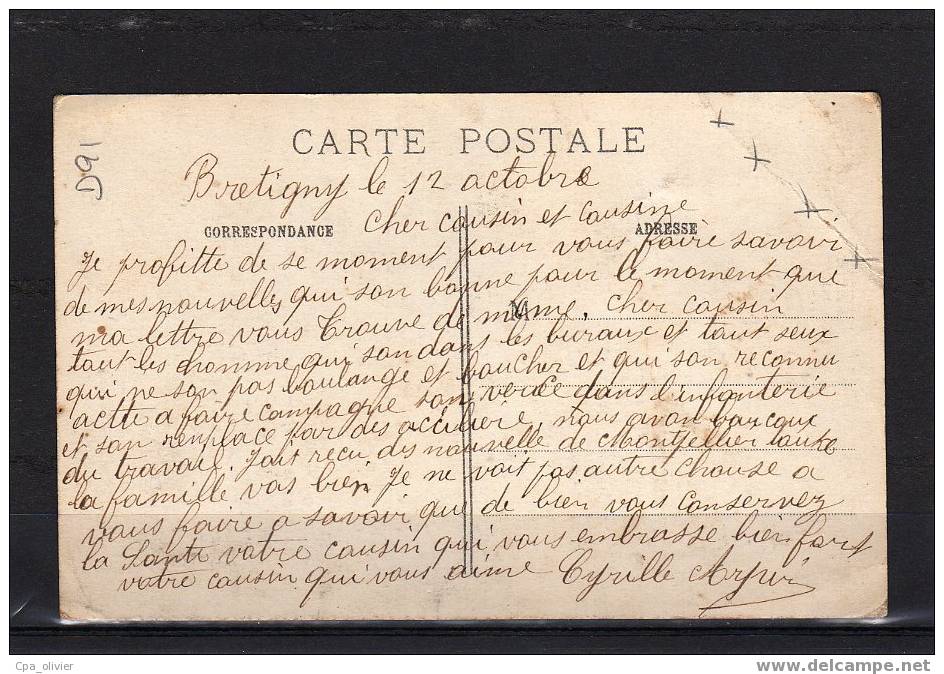 CARTE POSTALE
D91
Bretigny le 12 octobre
CORRESPONDANCE
ADRESSE
Cher cousin et cousine
Je profitte de se moment pour vous faire savoir
de mes nouvelles qui son bonne pour le moment que
ma lettre vous trouve de meme, cher cousin
M
tout les homme qui son dans les buraux et tout seux
qui ne son pas boulange et boucher et qui son reconnu
acte a faire campagne son versée dans l'infanterie
et son remplace par des , nous avon baucoux
du travail. Jait recu des nouvelle de Montpellier toute
la famille vas bien Je ne voit pas autre chause a
vous faire a savoir que de bien vous conservez
la Sante votre cousin qui vous embrasse bien fort
votre cousin qui vous aime Cyrille
Cpa_olivier
www.delcampe.net